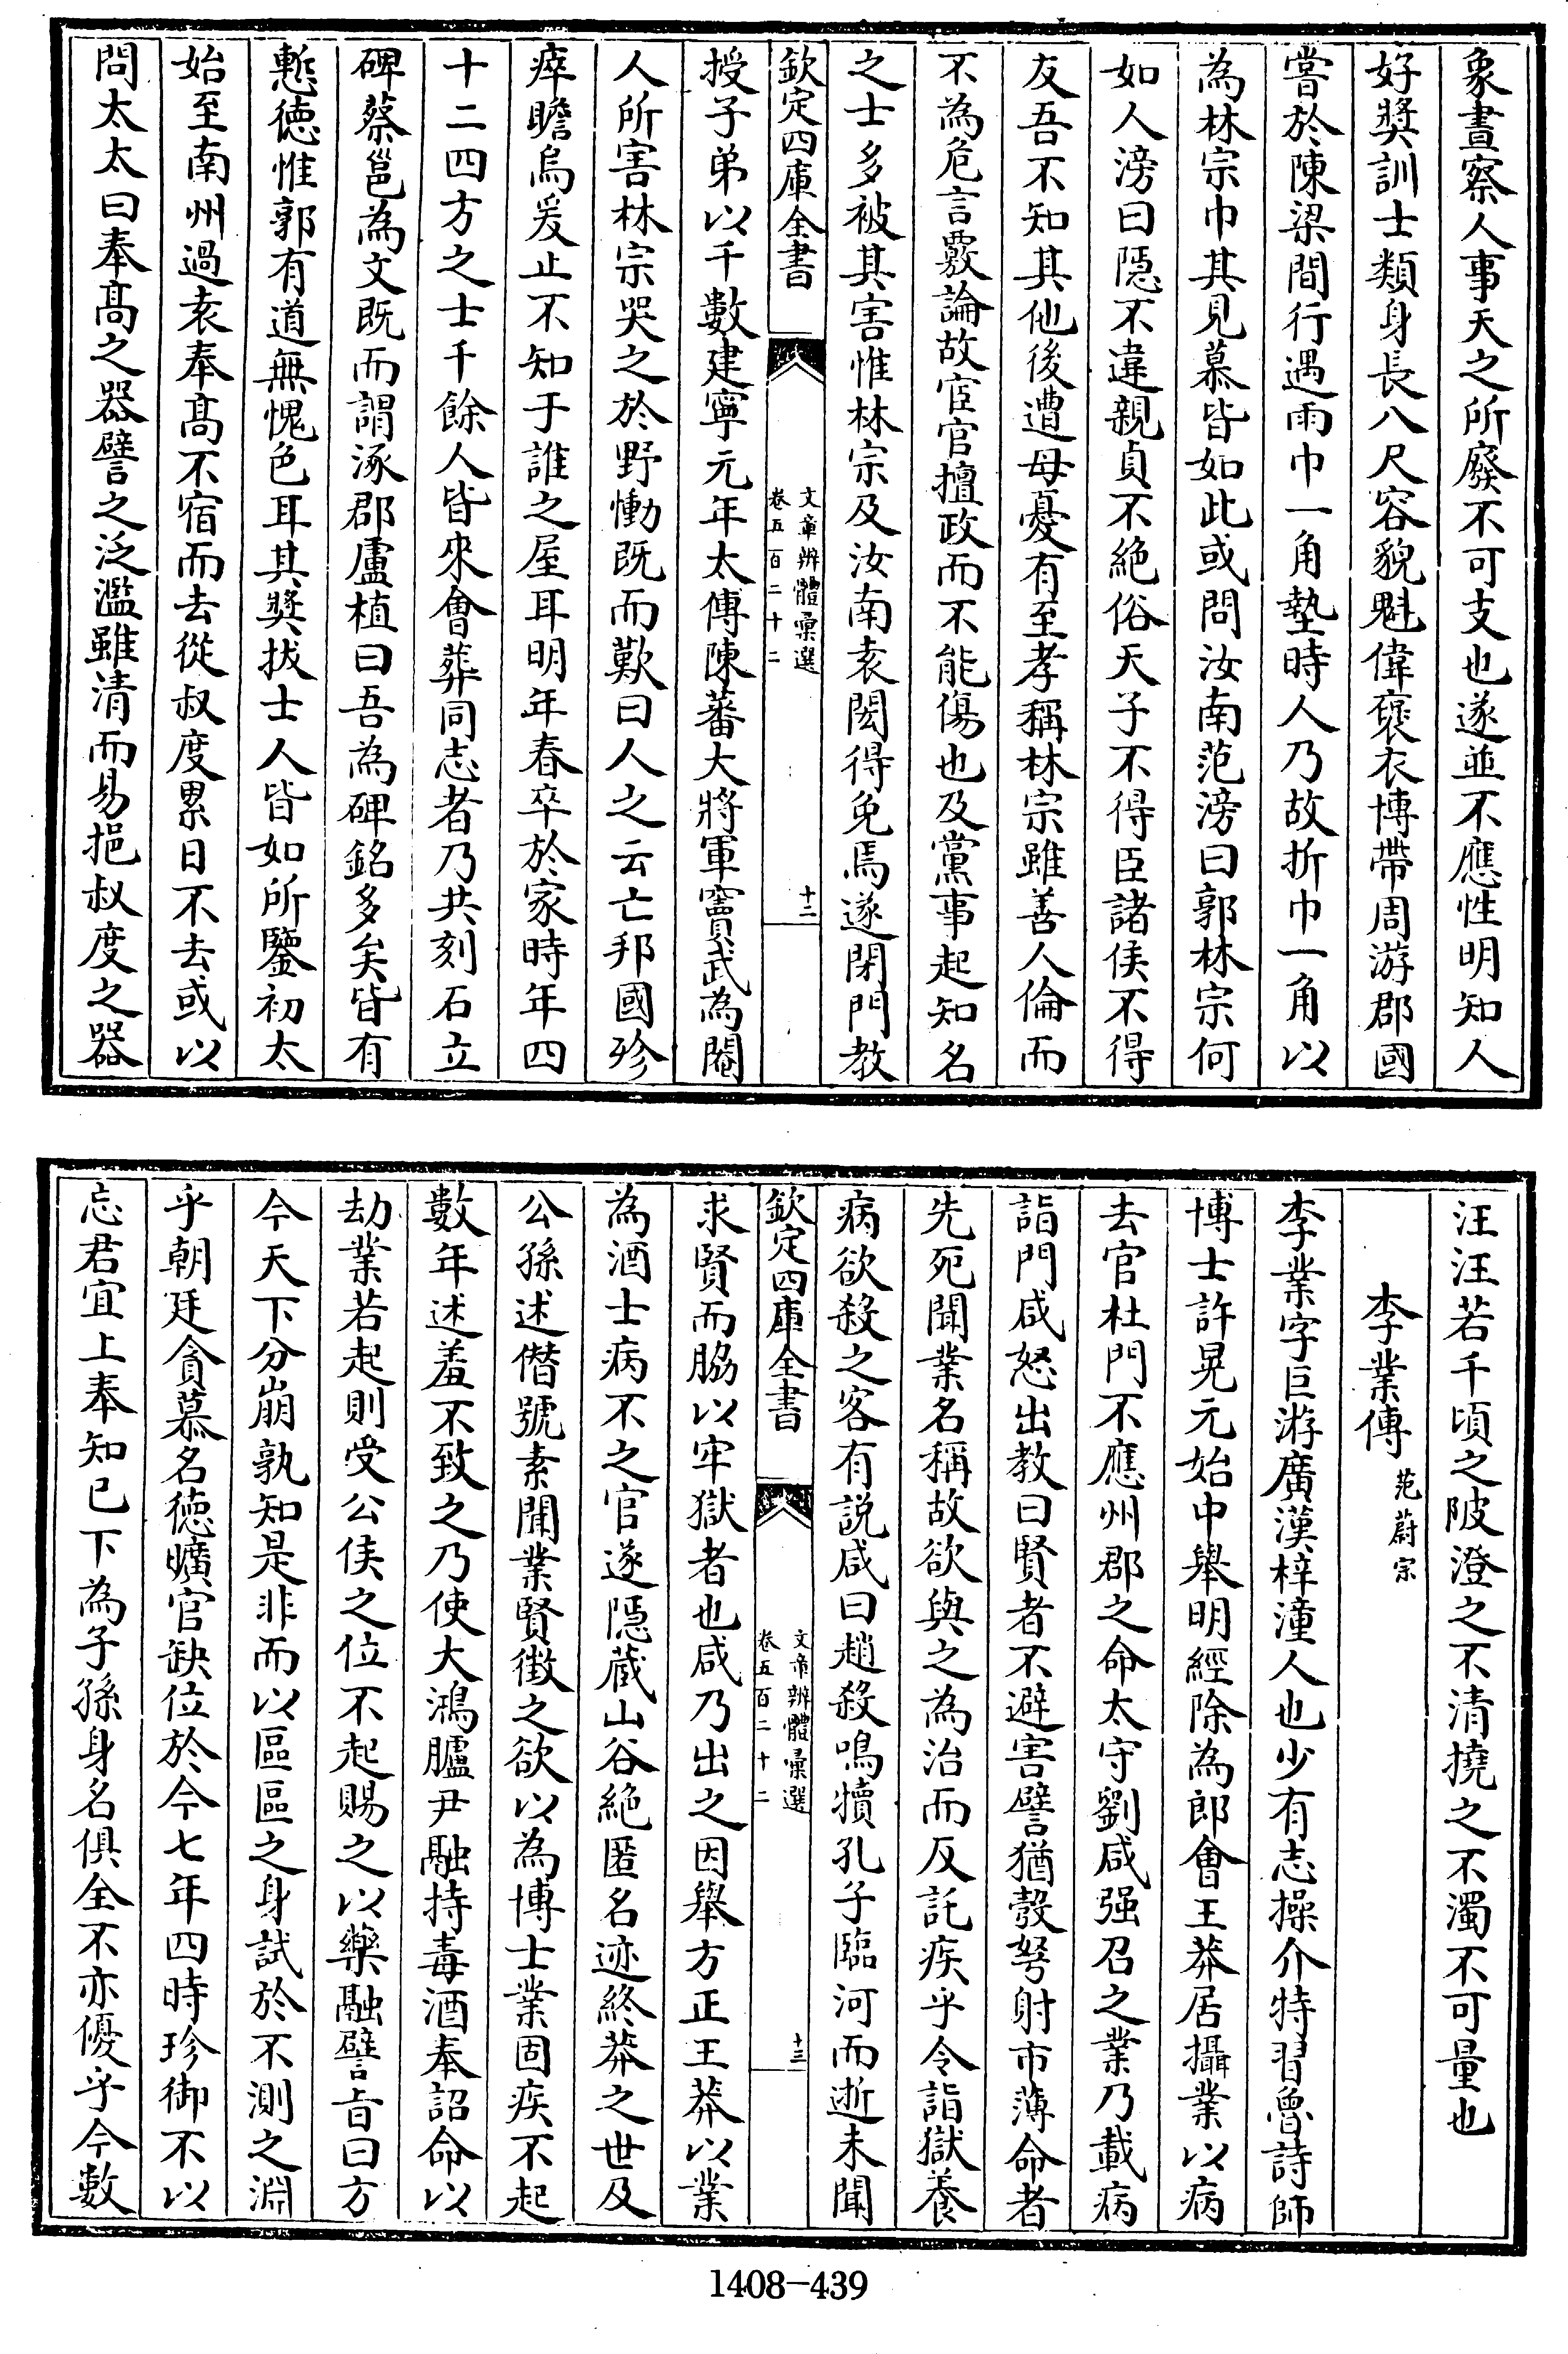 象晝察人事天之所廢不可支也遂並不應性明知人
好奬訓士類身長八尺容貌魁偉襃衣博帶周游郡國
嘗於陳梁間行遇雨巾一角墊時人乃故折巾一角以
為林宗巾其見慕皆如此或問汝南范滂曰郭林宗何
如人滂曰隱不違親貞不絶俗天子不得臣諸侯不得
友吾不知其他後遭母憂有至孝稱林宗雖善人倫而
不為危言覈論故宦官擅政而不能傷也及黨事起知名
之士多被其害惟林宗及汝南袁閎得免焉遂閉門教
欽定四庫全書
文章辨體彚選
卷五百二十二
十二
授子弟以千數建寧元年太傅陳蕃大將軍竇武為閹
人所害林宗哭之於野慟既而歎曰人之云亡邦國殄
瘁瞻烏爰止不知于誰之屋耳明年春卒於家時年四
十二四方之士千餘人皆來會葬同志者乃共刻石立
碑蔡邕為文既而謂涿郡盧植曰吾為碑銘多矣皆有
慙徳惟郭有道無愧色耳其奬拔士人皆如所鑒初太
始至南州過袁奉髙不宿而去從叔度累日不去或以
問太太曰奉髙之器譬之泛濫雖清而易挹叔度之器
汪汪若千頃之陂澄之不清撓之不濁不可量也
李業傳 范蔚宗
李業字巨游廣漢梓潼人也少有志操介特習魯詩師
博士許晃元始中舉明經除為郎會王莽居攝業以病
去官杜門不應州郡之命太守劉咸强召之業乃載病
詣門咸怒出教曰賢者不避害譬猶彀弩射市薄命者
先死聞業名稱故欲與之為治而反託疾乎令詣獄養
病欲殺之客有説咸曰趙殺鳴犢孔子臨河而逝未聞
欽定四庫全書
文章辨體彚選
卷五百二十二
十三
求賢而脇以牢獄者也咸乃出之因舉方正王莽以業
為酒士病不之官遂隠蔵山谷絶匿名迹終莽之世及
公孫述僭號素聞業賢徴之欲以為博士業固疾不起
數年述羞不致之乃使大鴻臚尹融持毒酒奉詔命以
劫業若起則受公侯之位不起賜之以藥融譬㫖曰方
今天下分崩孰知是非而以區區之身試於不測之淵
乎朝廷貪慕名徳曠官缺位於今七年四時珍御不以
忘君宜上奉知已下為子孫身名俱全不亦優乎今數
1408-439